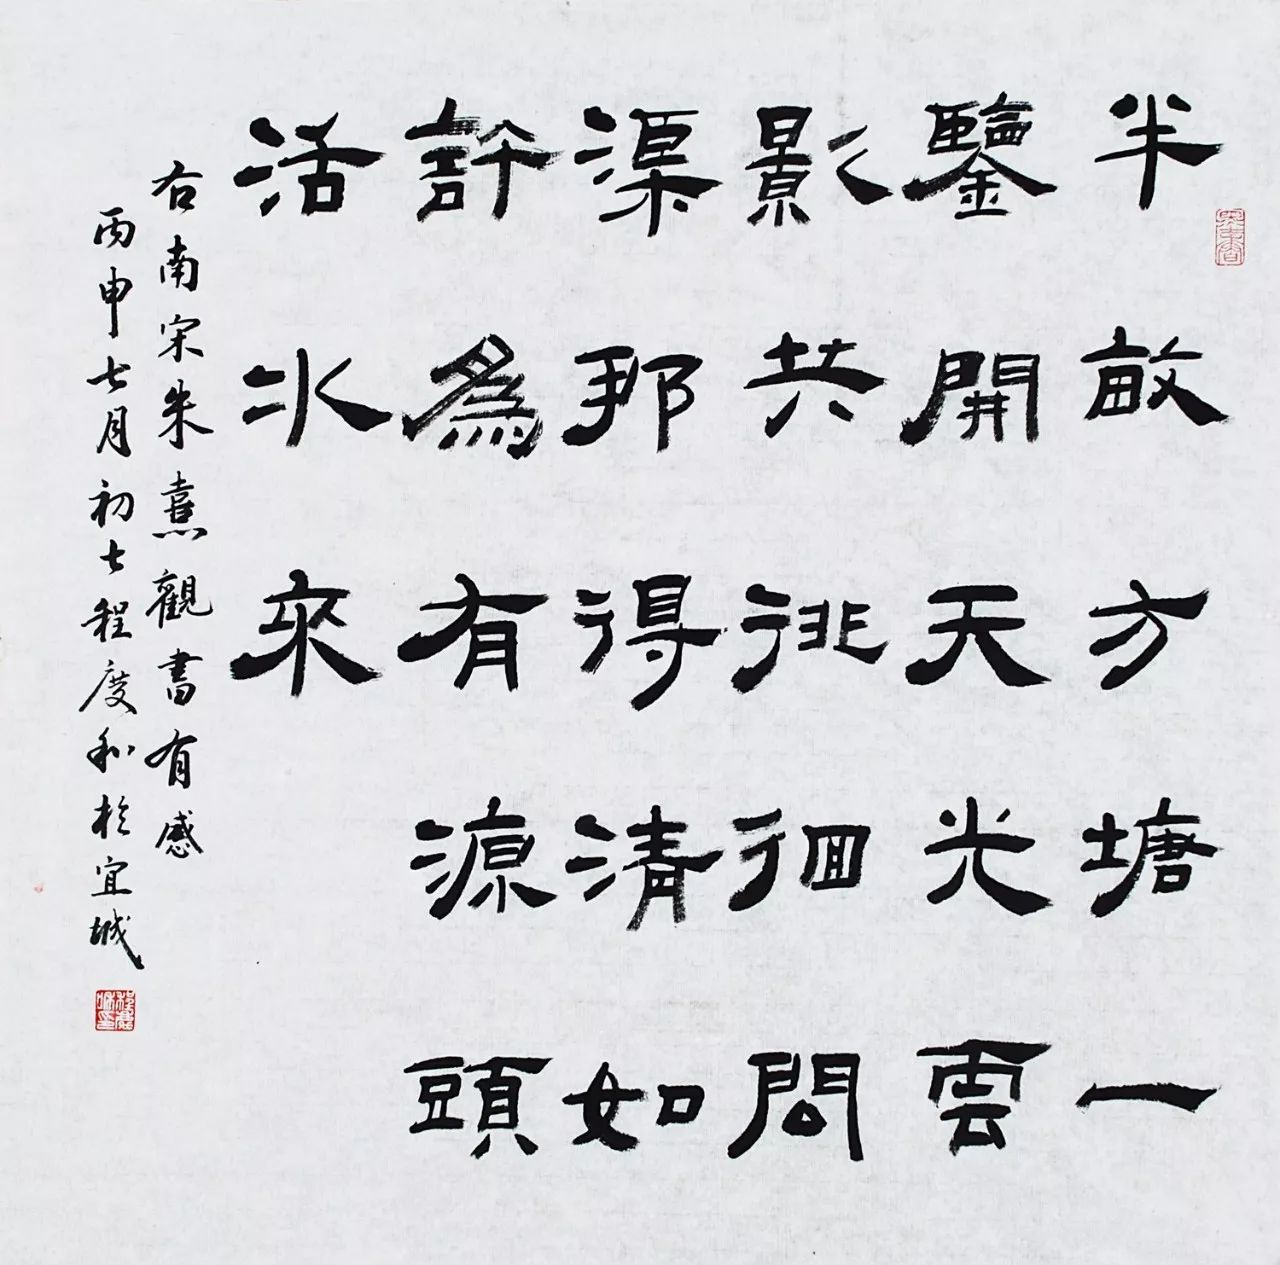 半畝方塘一
鑒開天光雲
影共徘徊問
渠那得清如
許為有源頭
活水來
右南宋朱熹觀書有感
丙申七月初七程度和於宜城